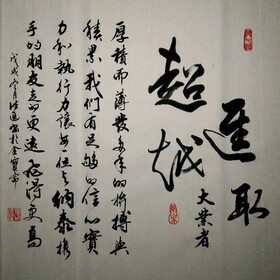 進取
超越
大業者
厚積而薄發多年的拚搏與
積累我們有足夠的信心實
力和執行力讓每一位與納泰攜
手的朋友走的更遠飛得更高
戊戌月書於金寶齋